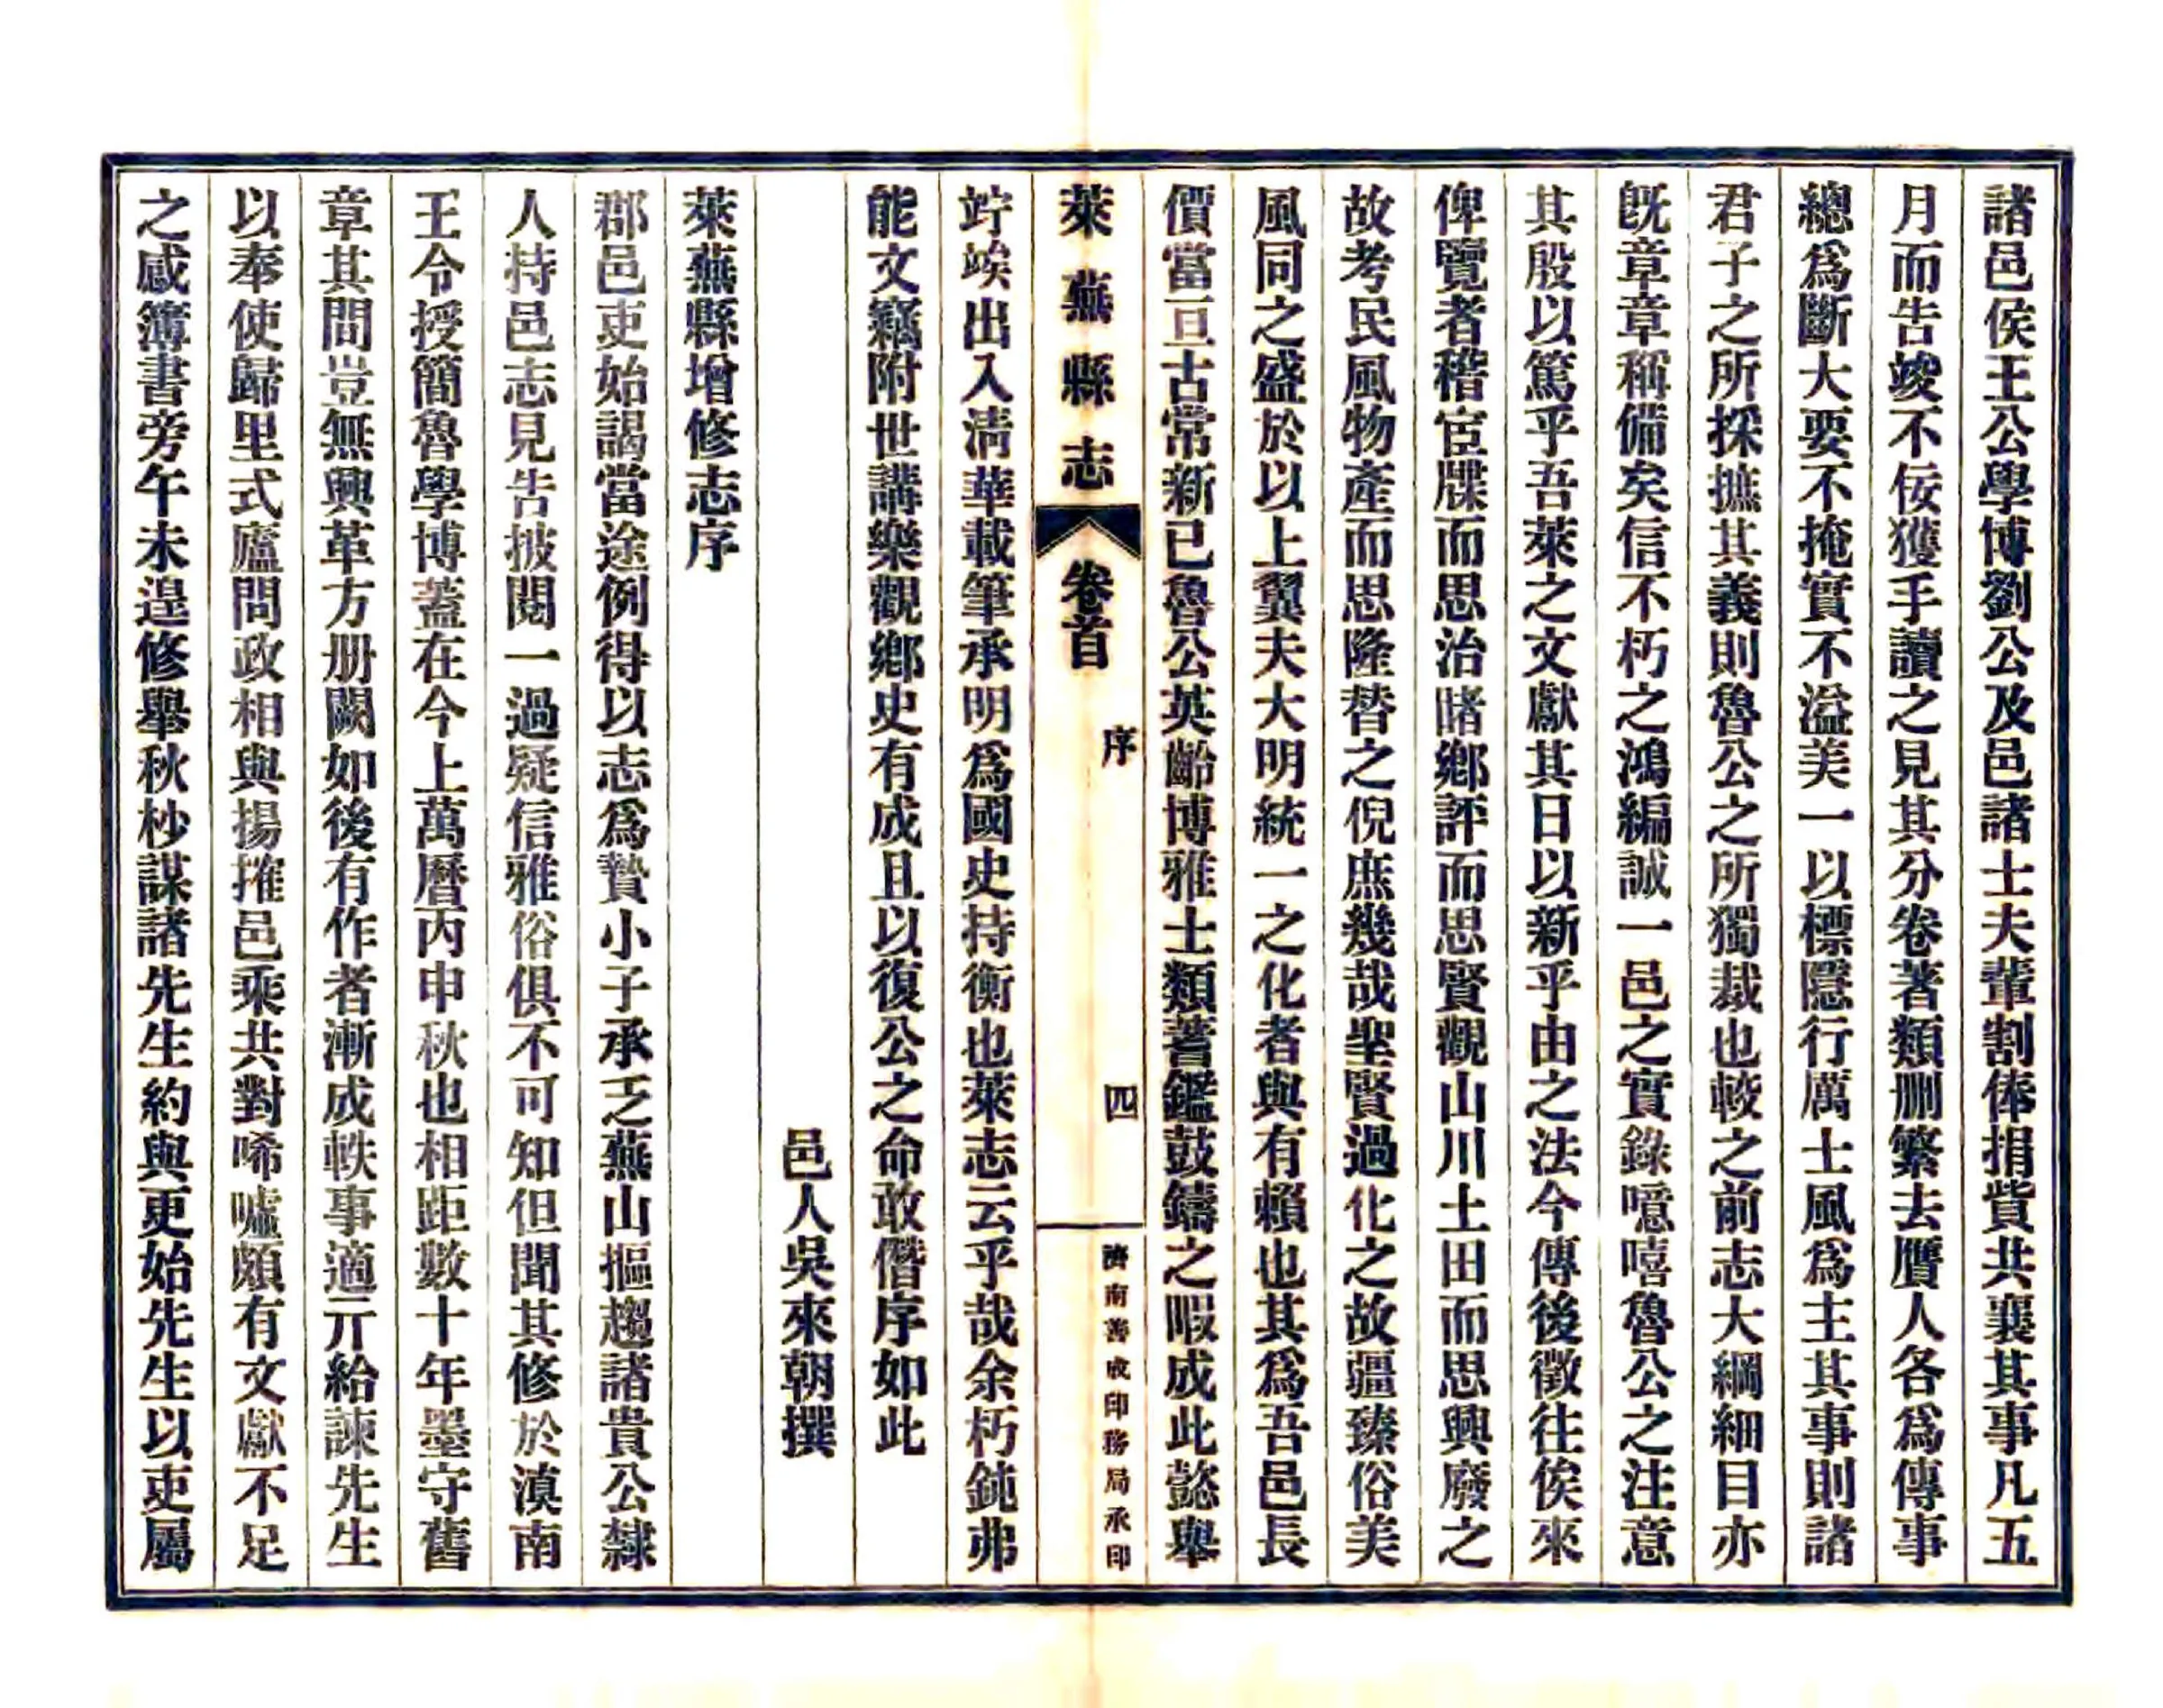 諸邑侯王公學博劉公及邑諸士夫輩割俸捐貲共襄其事凡五
月而告竣不佞獲手讀之見其分卷著類刪繁去贋人各爲傳事
總爲斷大要不掩實不溢美一以標隱行厲士風爲主其事則諸
君子之所採摭其義則魯公之所獨裁也較之前志大綱細目亦
旣章章稱備矣信不朽之鴻編誠一邑之實錄噫嘻魯公之注意
其殷以篤乎吾萊之文獻其日以新乎由之法今傳後徵往俟來
俾覽者稽宦牒而思治睹鄉評而思賢觀山川土田而思興廢之
故考民風物產而思隆替之倪庶幾哉聖賢過化之故疆臻俗美
風同之盛於以上翼夫大明統一之化者與有賴也其爲吾邑長
價當亘古常新已魯公英齡博雅士類蓍鑑鼓鑄之暇成此懿舉
萊蕪縣志 卷首 序 四 濟南善成印務局承印
竚竢出入淸華載筆承明爲國史持衡也萊志云乎哉余朽鈍弗
能文竊附世講樂觀鄉史有成且以復公之命敢僭序如此
邑人吳來朝撰
萊蕪縣增修志序
郡邑吏始謁當途例得以志爲贄小子承乏蕪山摳趨諸貴公隸
人持邑志見告披閱一過疑信雅俗俱不可知但聞其修於滇南
王令授簡魯學博蓋在今上萬曆丙申秋也相距數十年墨守舊
章其問豈無興革方册闕如後有作者漸成軼事適亓給諫先生
以奉使歸里式廬問政相與揚搉邑乘共對唏噓頗有文獻不足
之慼簿書旁午未遑修舉秋杪謀諸先生約與更始先生以吏屬